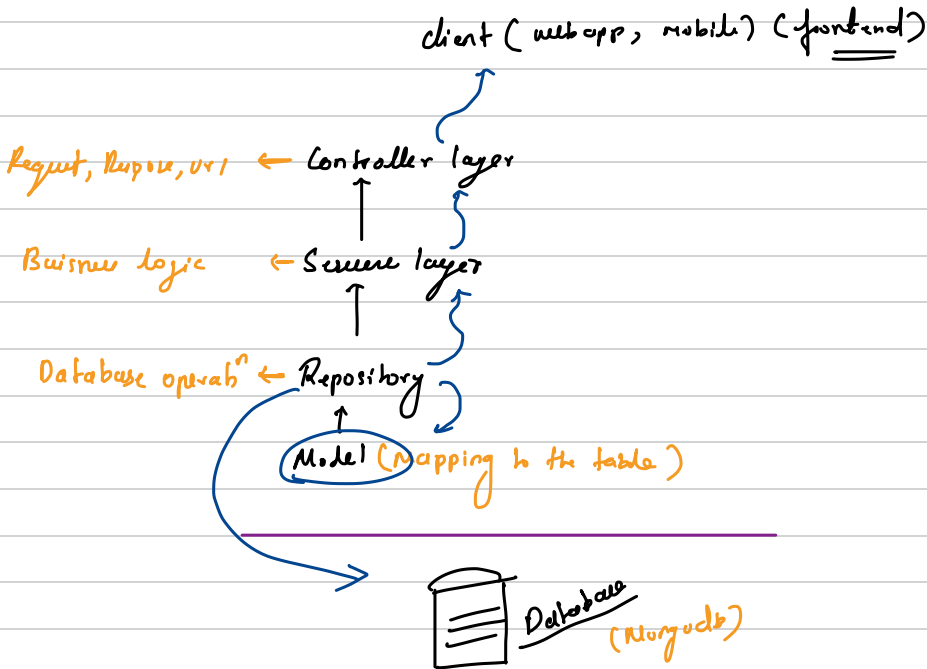 client (webapp, mobile) (frontend)
Request, Response, url ← Controller layer
Buisness logic ← Service layer
Database operatⁿ ← Repository
Model (Mapping to the table)
Database
(Mongodb)